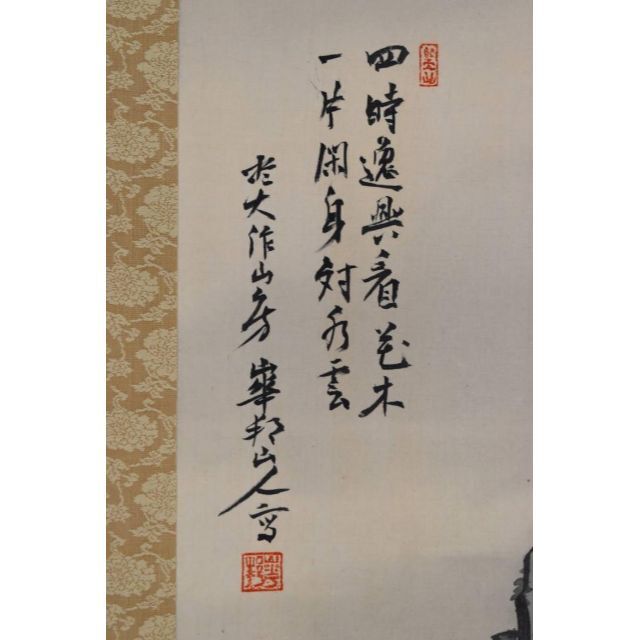 四時逸興看花木
一片閑身対水雲
於大作山房 華邦山人写